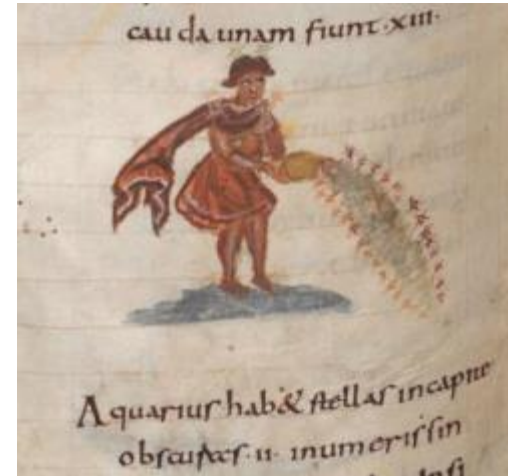 cauda unam fiunt·xiii·
Aquarius hab& stellas in capite
obscuras·ii· in umeris sin